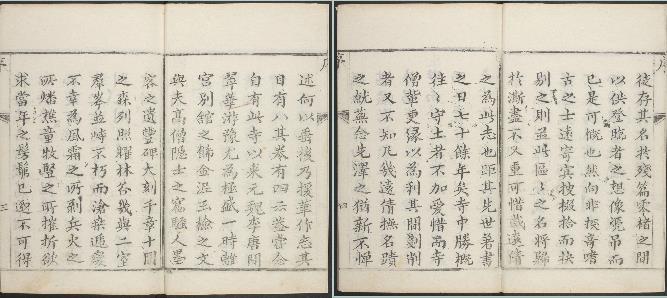 述何以垂後乃援筆作志其
目有八其卷有四云蓋嘗念
自有此寺以來元魏李唐間
翠華游豫尤為極盛一時離
宮別館之稱金泥玉檢之文
與夫高僧隱士之窩騷人墨
客之遺豐碑大刻千章十圍
之森列照耀林谷幾與二室
羣峯並峙不朽而滄桑遞變
不幸為風霜之所剝兵火之
所燔樵童牧豎之所摧折欲
求當年之髣髴已邈不可得
序
三
徒存其名於殘篇零楮之間
以供登眺者之想像憑弔而
已是可慨也然向非探奇嗜
古之士遠窮冥搜掇拾而抉
剔之則並此區區之名將歸
於漸盡不又重可惜哉遠倩
序
四
之為此志也距其先世著書
之日七十餘年矣寺中勝概
往往守土者不加愛惜而寺
僧輩更緣以為利其間剗削
者又不知凡幾遠倩撫名蹟
之就蕪念先澤之猶新不憚